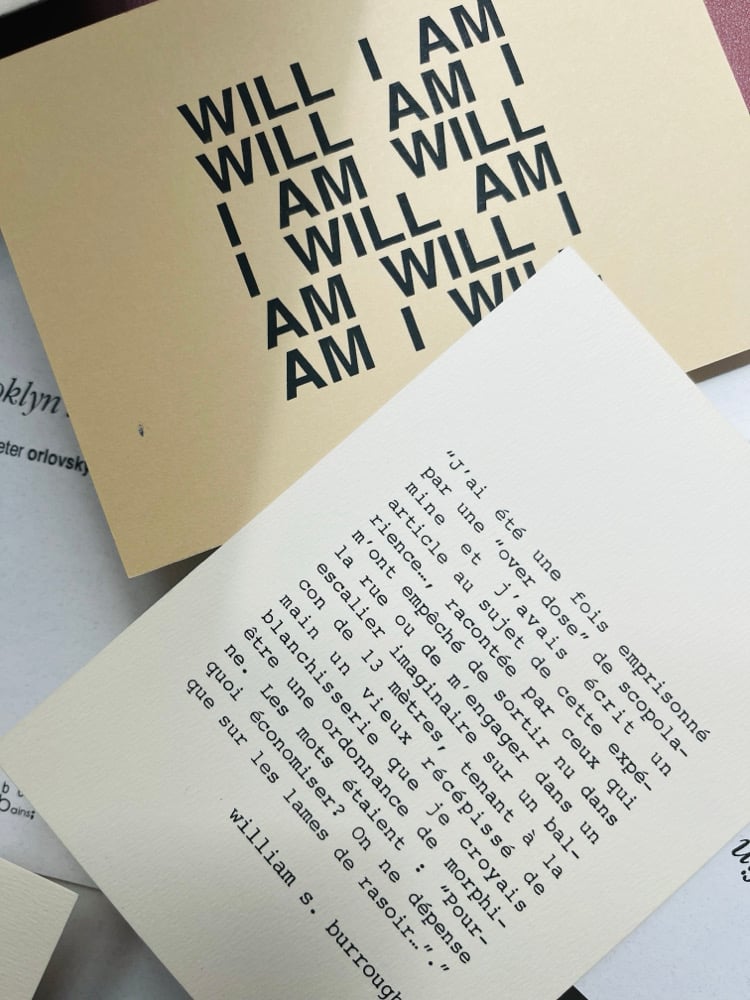 WILL I AM
WILL AM I
I AM WILL
I WILL AM
AM WILL I
AM I
oklyn
eter orlovsky
"J'ai été une fois emprisonné
par une "over dose" de scopola-
mine et j'avais écrit un
article au sujet de cette expé-
rience…, racontée par ceux qui
m'ont empêché de sortir nu dans
la rue ou de m'engager dans un
escalier imaginaire sur un bal-
con de 13 mètres, tenant à la
main un vieux récépissé de
blanchisserie que je croyais
être une ordonnance de morphi-
ne. Les mots étaient : "Pour-
quoi économiser? On ne dépense
que sur les lames de rasoir…"."
william s. burrough